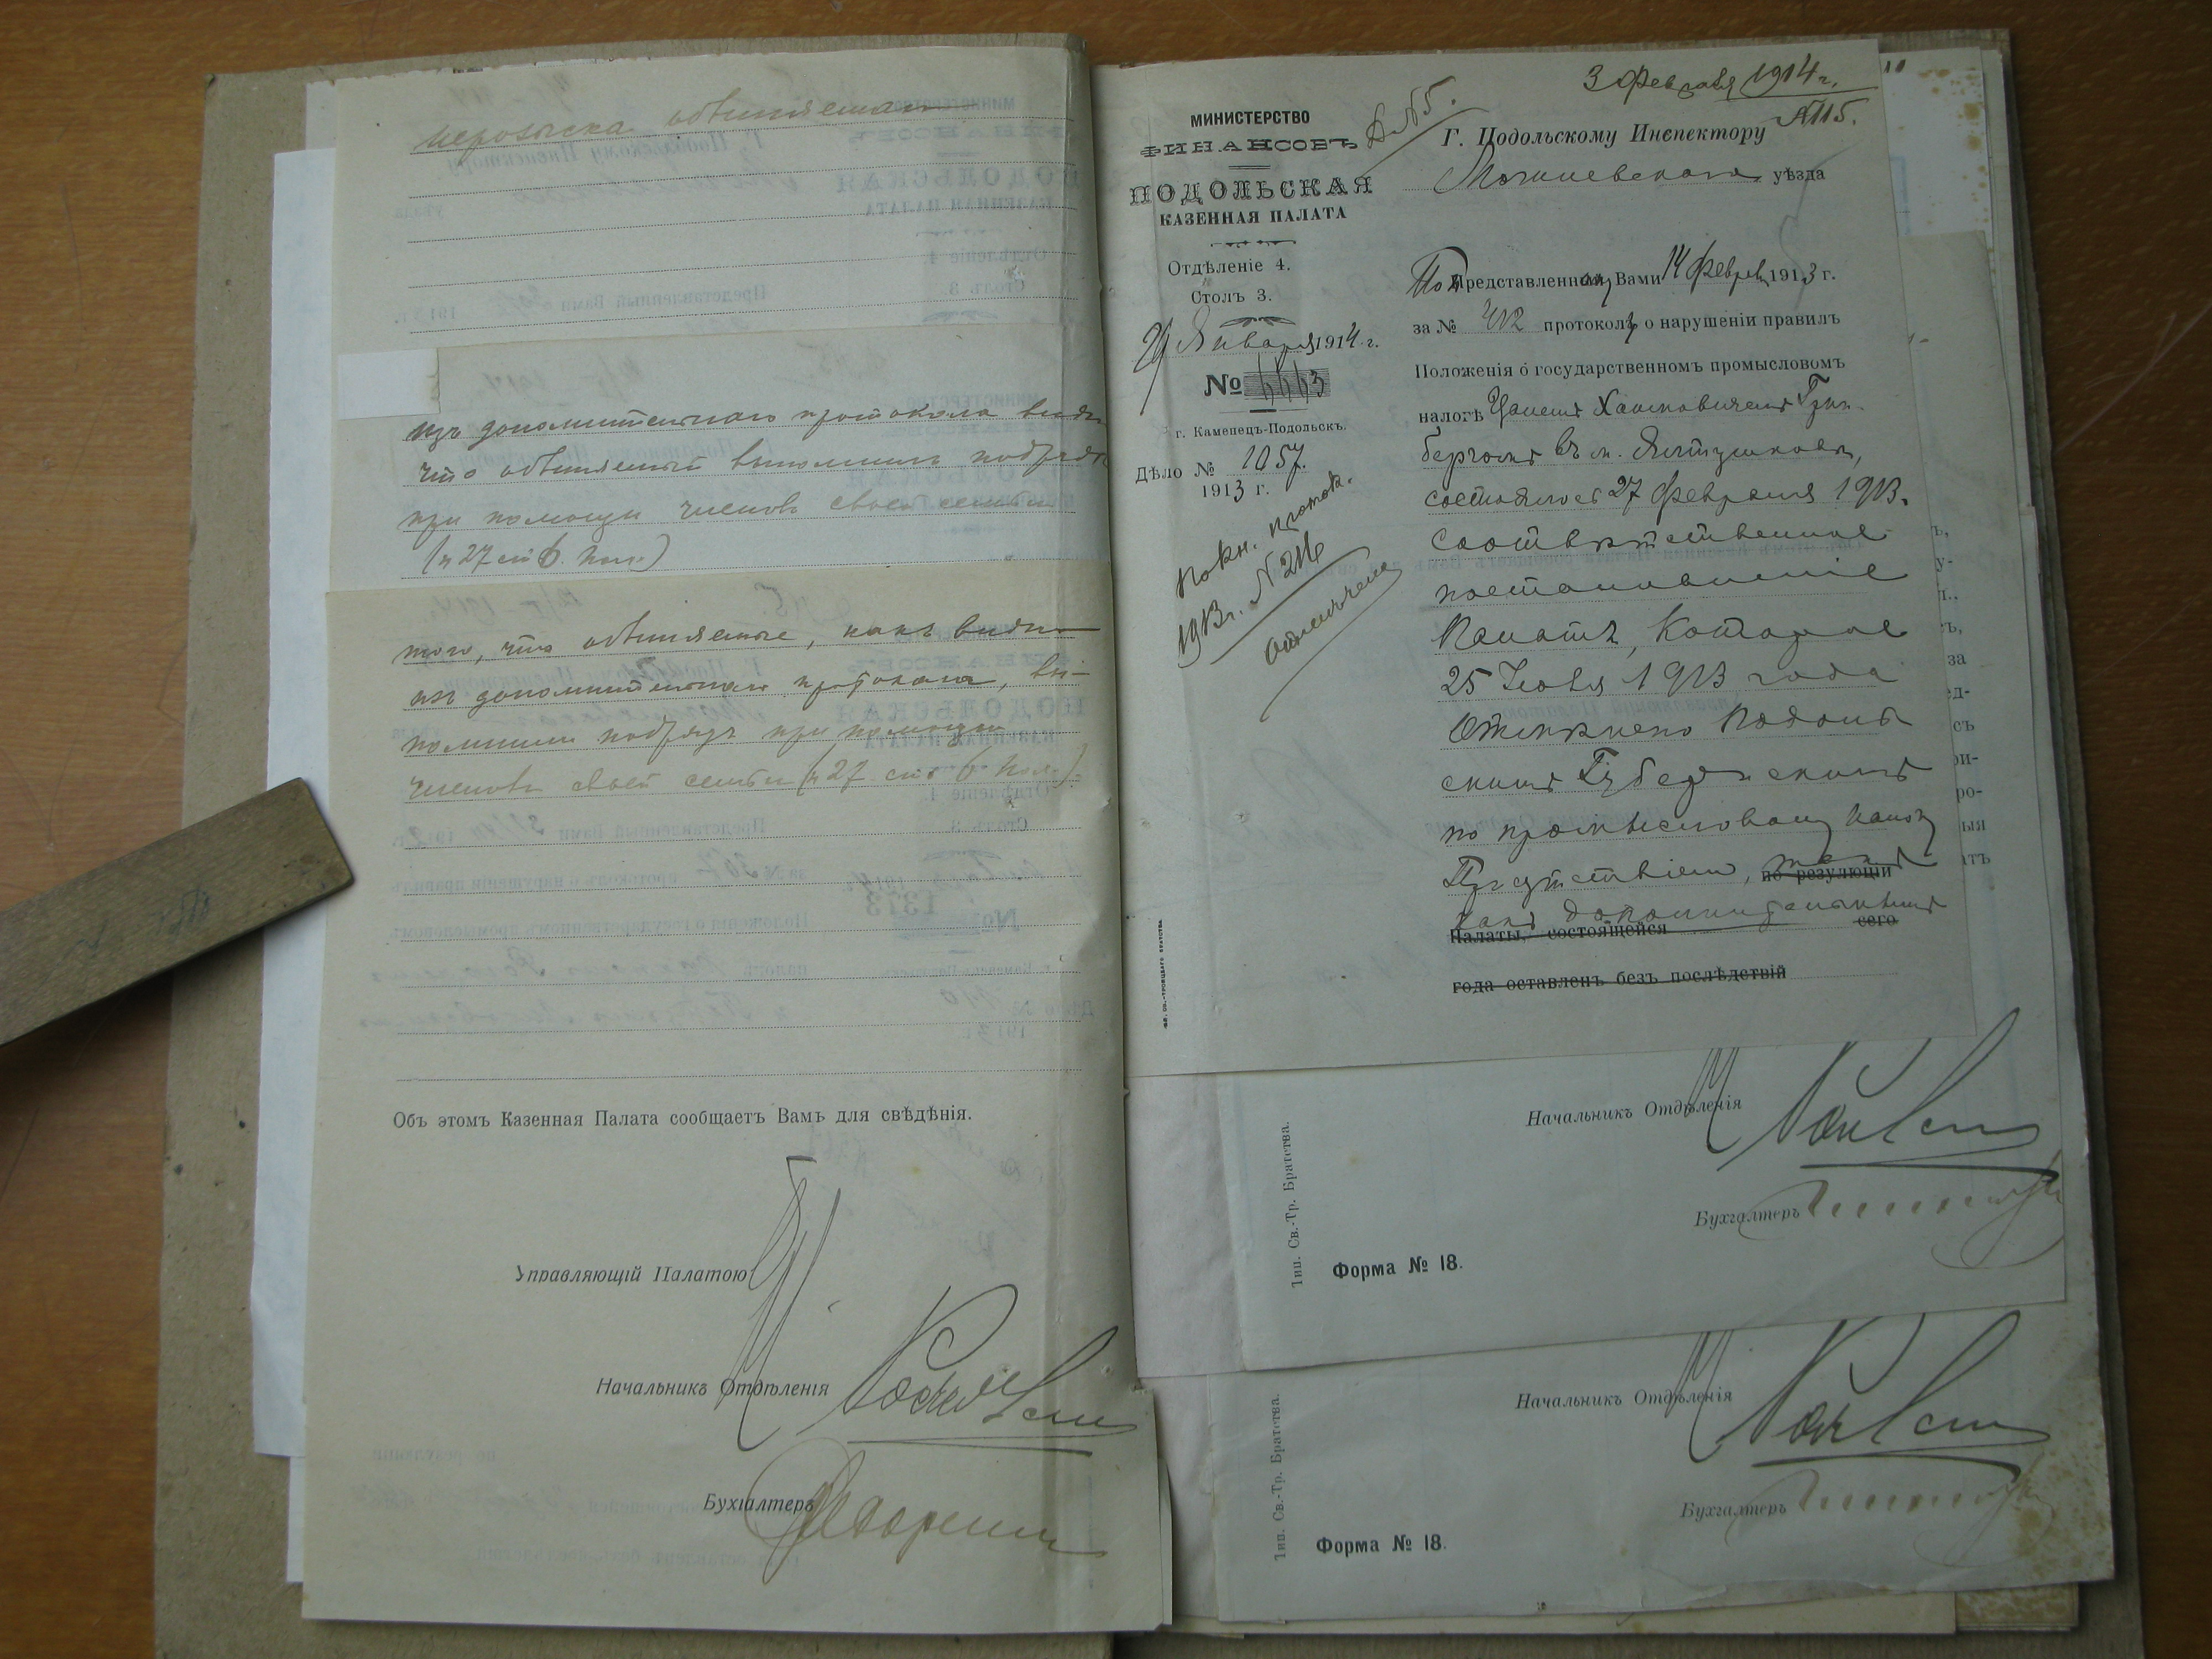 неровыска обвиняемаго
изъ дополнительнаго протокола видно
что обвиняемый выполнилъ подрядъ
при помощи членовъ своей семьи
(п 27 ст 6. пол.)
того, что обвиняемые, какъ видно
изъ дополнительнаго протокола, вы-
полнили подрядъ при помощи
членовъ своей семьи (п 27 ст 6 Пол.).
Объ этомъ Казенная Палата сообщаетъ Вамъ для свѣдѣнія.
Управляющій Палатою
Начальникъ Отдѣленія
Бухгалтеръ
3 Февраля 1914 г.
№115.
Д №5.
МИНИСТЕРСТВО
ФИНАНСОВЪ
ПОДОЛЬСКАЯ
КАЗЕННАЯ ПАЛАТА
Отдѣленіе 4.
Столъ 3.
29 Января 1914 г.
№ 4443
г. Каменецъ-Подольскъ.
Дѣло № 1057.
1913 г.
По кн. проток.
1913 г. №
Отмѣчено
Г. Подольскому Инспектору
Могилевскаго уѣзда
По Представленному Вами 14 Февр. 1913 г.
за № 412 протоколу о нарушеніи правилъ
Положенія о государственномъ промысловомъ
налогѣ Хаимовичемъ Грин-
бергомъ въ м. Ялтушковѣ,
состоялось 27 Февраля 1913.
соотвѣтственное
постановленіе
Палаты, которое
25 Іюня 1913 года
отмѣнено Подоль
скимъ Губернскимъ
по промысловому налогу
Присутствіемъ, такъ по резулюціи
какъ дополнительнымъ
Палаты, состоящейся сего
года оставленъ безъ послѣдствій
Начальникъ Отдѣленія
Бухгалтеръ
Тип. Св.-Тр. Братства.
Форма № 18.
Начальникъ Отдѣленія
Бухгалтеръ
Тип. Св.-Тр. Братства.
Форма № 18.